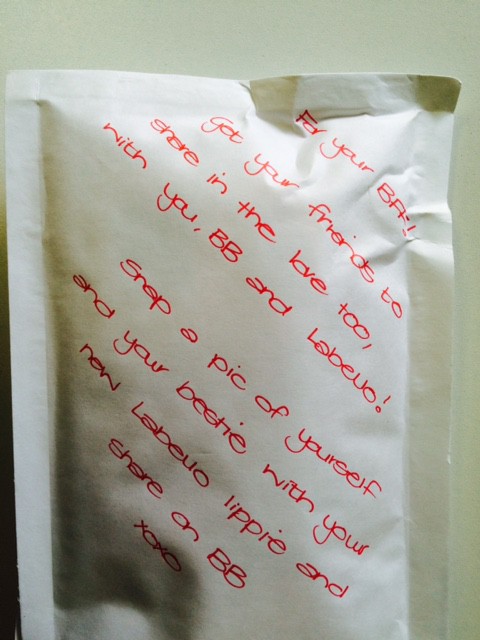 For your BFF!
Get your friends to
share in the love too,
with you, BB and Labello!
Snap a pic of yourself
and your bestie with your
new Labello lippie and
share on BB
xoxo